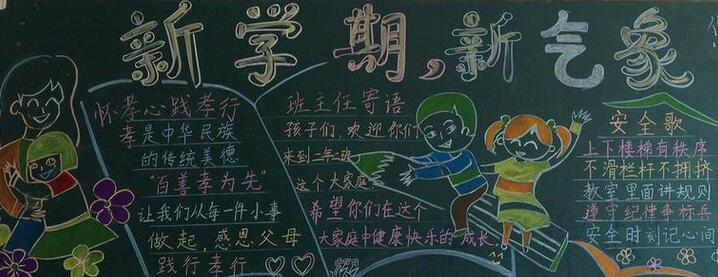 新学期，新气象
怀孝心践孝行
孝是中华民族
的传统美德
"百善孝为先"
让我们从每一件小事
做起，感恩父母
践行孝行
班主任寄语
孩子们，欢迎你们
来到二年班
这个大家庭
希望你们在这个
大家庭中健康快乐的成长
安全歌
上下楼梯有秩序
不滑栏杆不拥挤
教室里面讲规则
遵守纪律争标兵
安全时刻记心间